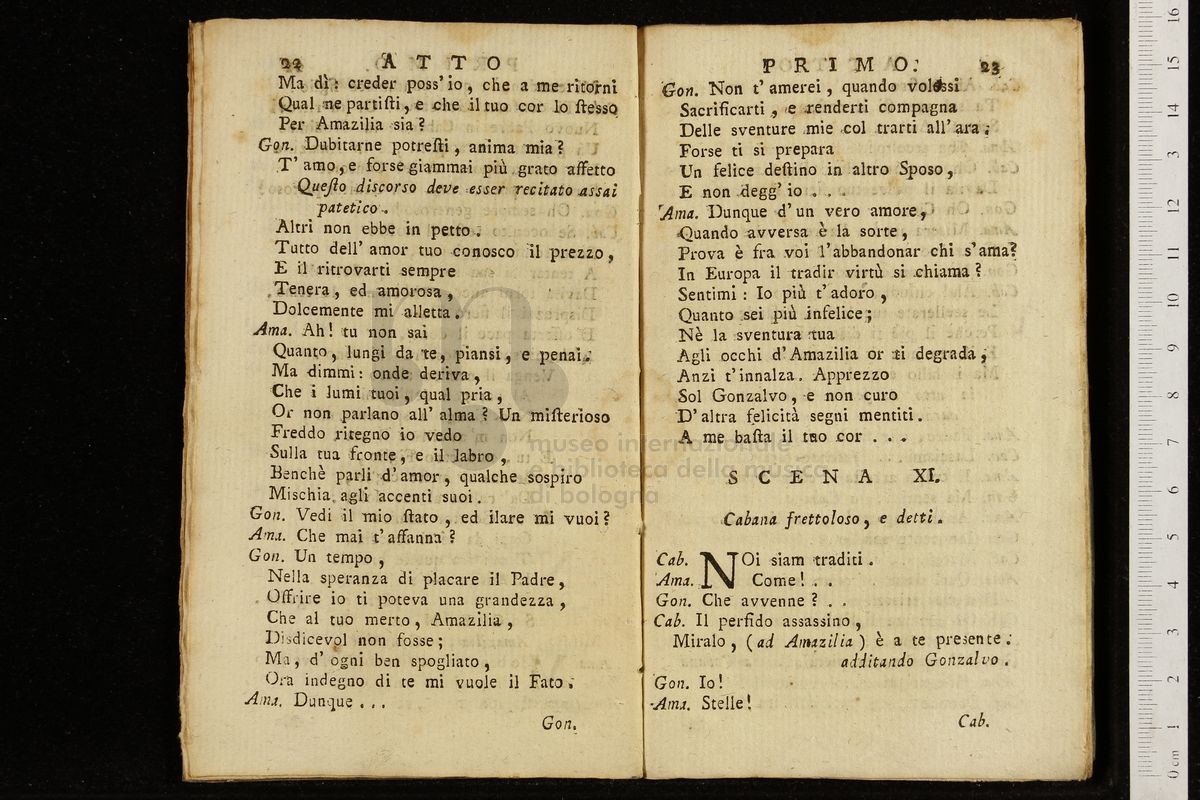 22 ATTO
Ma dì: creder poss' io, che a me ritorni
Qual ne partiſti, e che il tuo cor lo ſteſso
Per Amazilia sia?
Gon. Dubitarne potreſti, anima mia?
T' amo, e forse giammai più grato affetto
Queſto discorso deve esser recitato assai
patetico.
Altri non ebbe in petto.
Tutto dell' amor tuo conosco il prezzo,
E il ritrovarti sempre
Tenera, ed amorosa,
Dolcemente mi alletta.
Ama. Ah! tu non sai
Quanto, lungi da te, piansi, e penai.
Ma dimmi: onde deriva,
Che i lumi tuoi, qual pria,
Or non parlano all' alma? Un miſterioso
Freddo ritegno io vedo
Sulla tua fronte, e il labro,
Benchè parli d' amor, qualche sospiro
Mischia agli accenti suoi.
Gon. Vedi il mio ſtato, ed ilare mi vuoi?
Ama. Che mai t' affanna?
Gon. Un tempo,
Nella speranza di placare il Padre,
Offrire io ti poteva una grandezza,
Che al tuo merto, Amazilia,
Disdicevol non fosse;
Ma, d' ogni ben spogliato,
Ora indegno di te mi vuole il Fato.
Ama. Dunque...
Gon.
PRIMO. 23
Gon. Non t' amerei, quando volessi
Sacrificarti, e renderti compagna
Delle sventure mie col trarti all' ara;
Forse ti si prepara
Un felice deſtino in altro Sposo,
E non degg' io . .
Ama. Dunque d' un vero amore,
Quando avversa è la sorte,
Prova è fra voi l' abbandonar chi s' ama?
In Europa il tradir virtù si chiama?
Sentimi: Io più t' adoro,
Quanto sei più infelice;
Nè la sventura tua
Agli occhi d' Amazilia or ti degrada;
Anzi t' innalza. Apprezzo
Sol Gonzalvo, e non curo
D' altra felicità segni mentiti.
A me baſta il tuo cor . . .
SCENA XI.
Cabana frettoloso, e detti.
Cab. NOi siam traditi.
Ama. Come! . .
Gon. Che avvenne? . .
Cab. Il perfido assassino,
Miralo, (ad Amazilia) è a te presente.
additando Gonzalvo.
Gon. Io!
Ama. Stelle!
Cab.
museo internazionale
e biblioteca della musica
di bologna
0 cm 1 2 3 4 5 6 7 8 9 10 11 12 13 14 15 16